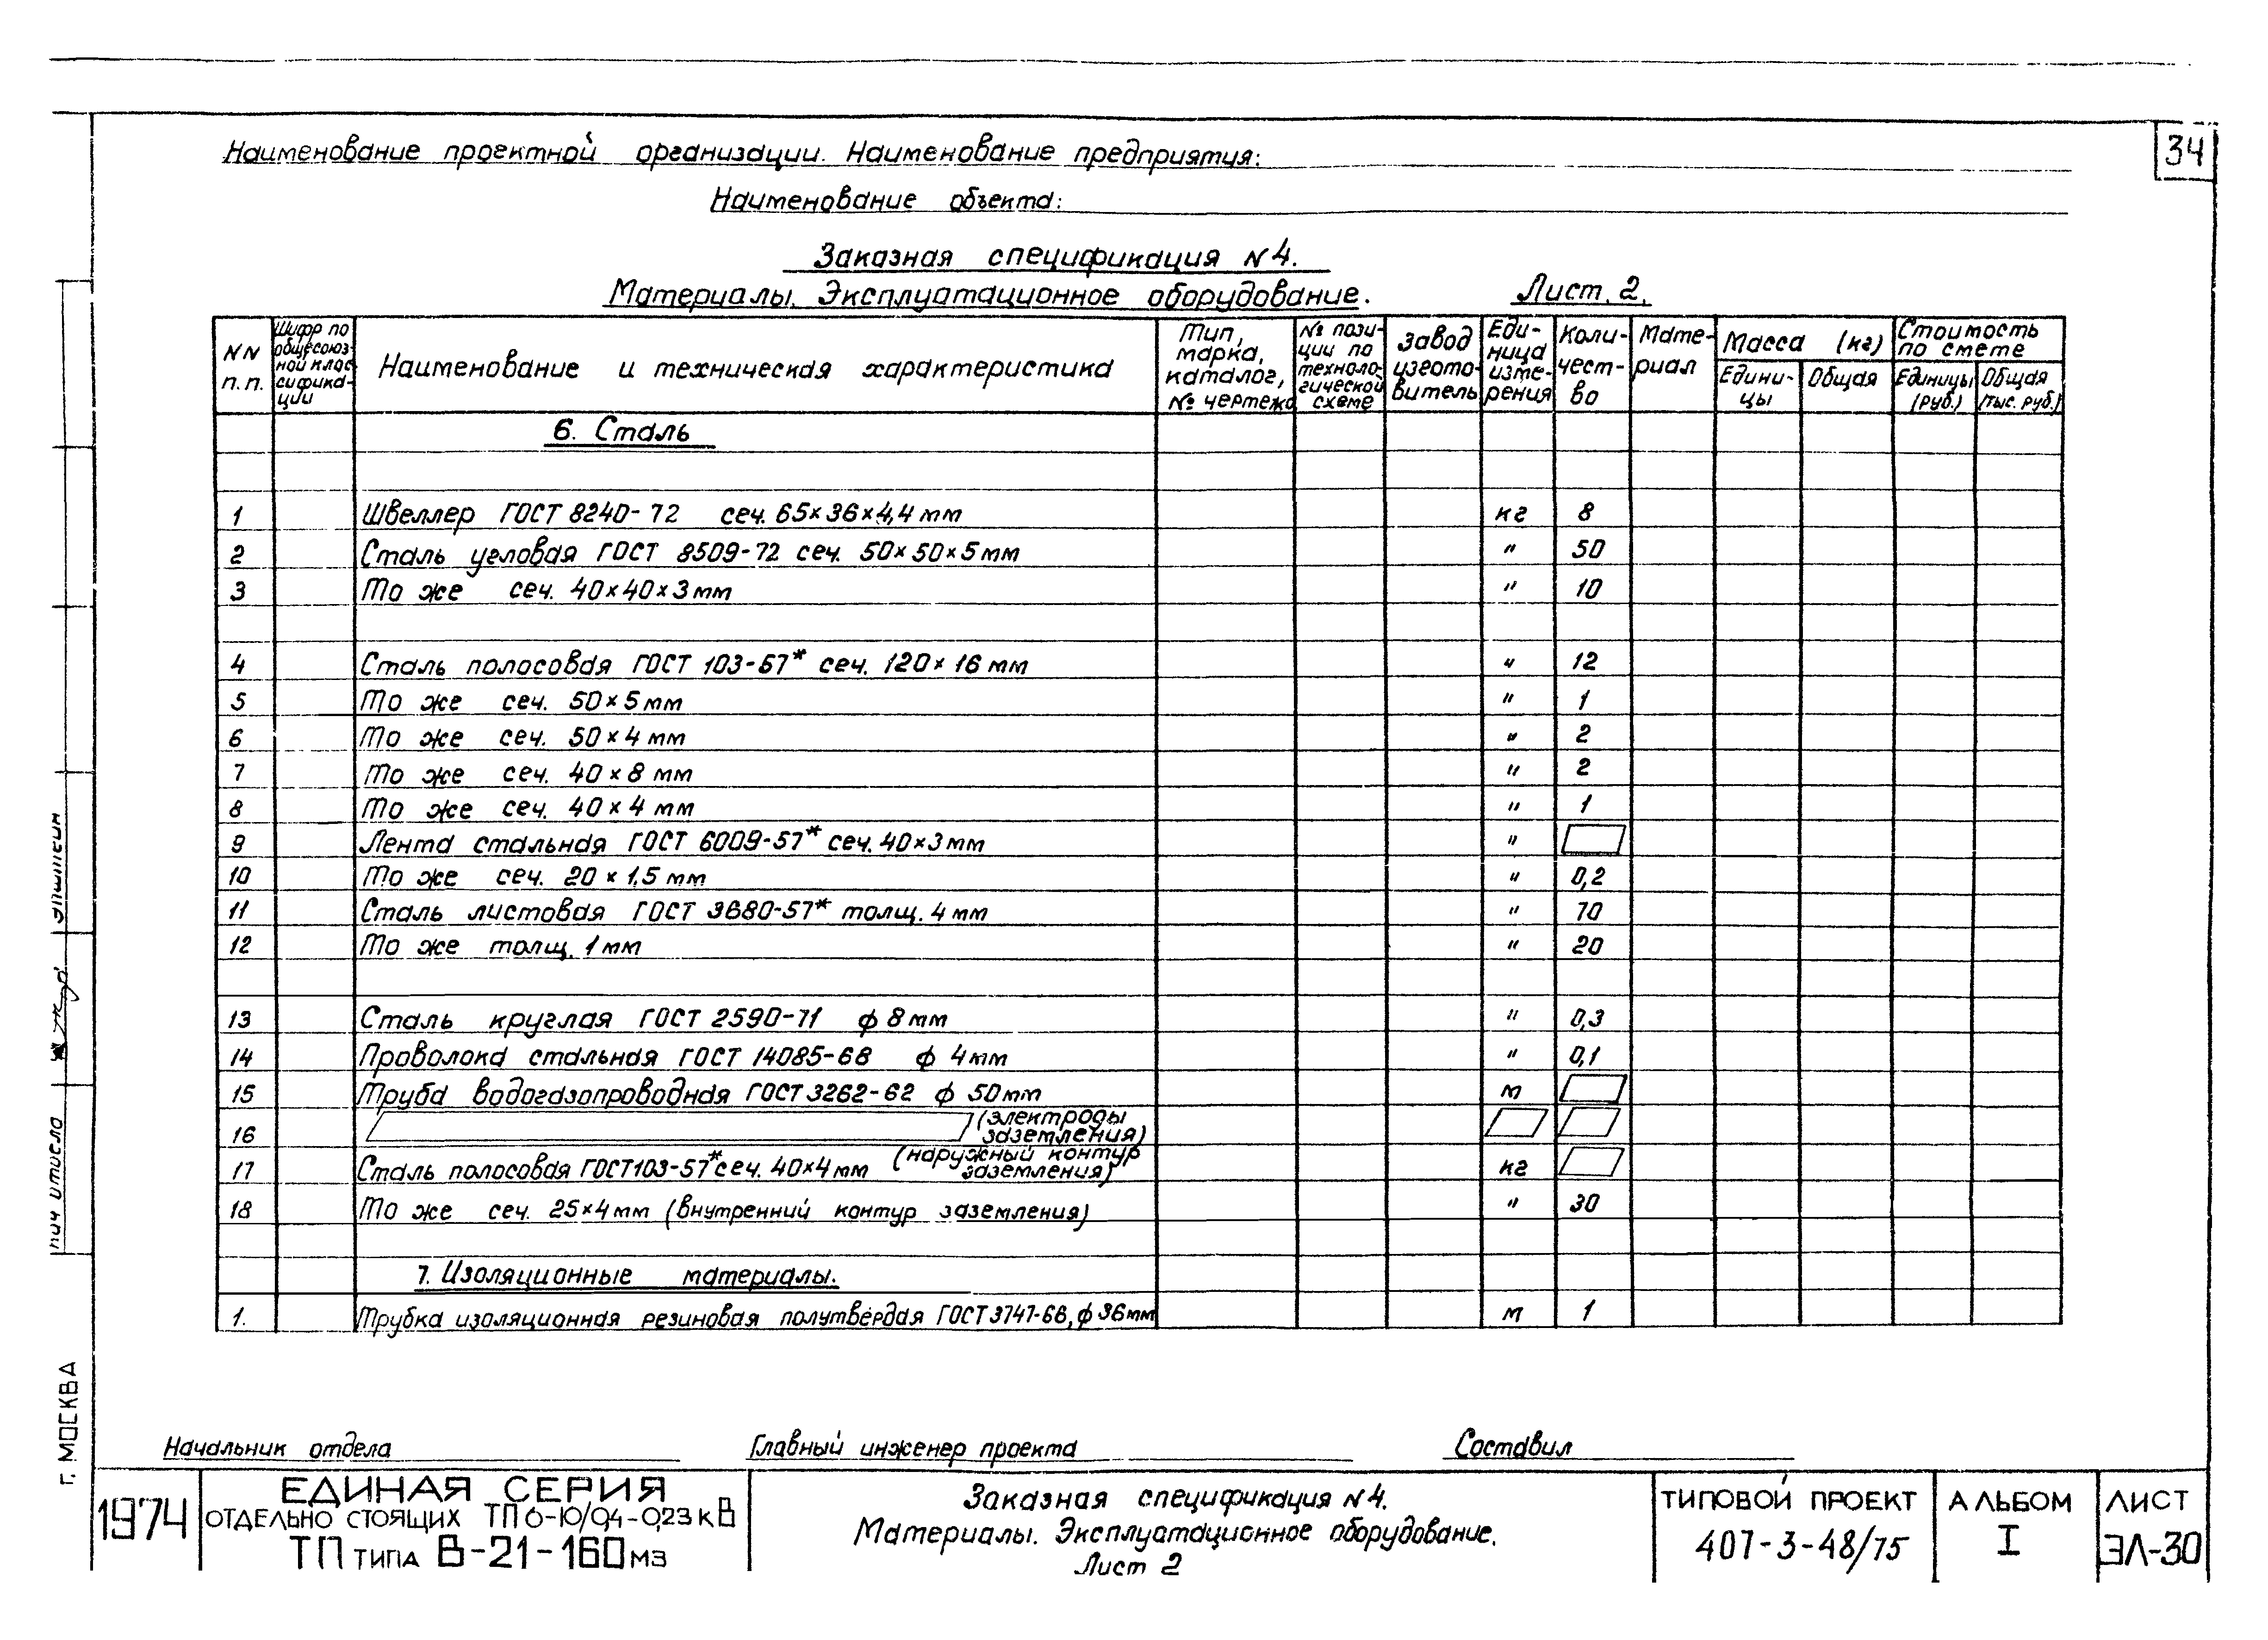 34
Наименование проектной организации. Наименование предприятия:
Наименование объекта:
Заказная спецификация N4.
Материалы. Эксплуатационное оборудование. Лист. 2.
NN п.п. Шифр по общесоюзной классификации Наименование и техническая характеристика Тип, марка, каталог, № чертежа № позиции по технологической схеме Завод изготовитель Единица измерения Количество Материал Масса (кг) Единицы Общая Стоимость по смете Единицы (руб.) Общая (тыс. руб.)
6. Сталь
1 Швеллер ГОСТ 8240-72 сеч. 65×36×4,4 мм кг 8
2 Сталь угловая ГОСТ 8509-72 сеч. 50×50×5 мм " 50
3 То же сеч. 40×40×3 мм " 10
4 Сталь полосовая ГОСТ 103-57* сеч. 120×16 мм " 12
5 То же сеч. 50×5 мм " 1
6 То же сеч. 50×4 мм " 2
7 То же сеч. 40×8 мм " 2
8 То же сеч. 40×4 мм " 1
9 Лента стальная ГОСТ 6009-57* сеч. 40×3 мм "
10 То же сеч. 20×1,5 мм " 0,2
11 Сталь листовая ГОСТ 3680-57* толщ. 4 мм " 70
12 То же толщ. 1 мм " 20
13 Сталь круглая ГОСТ 2590-71 ф 8 мм " 0,3
14 Проволока стальная ГОСТ 14085-68 ф 4 мм " 0,1
15 Труба водогазопроводная ГОСТ 3262-62 ф 50 мм м
16 (электроды заземления)
17 Сталь полосовая ГОСТ 103-57* сеч. 40×4 мм (наружный контур заземления) кг
18 То же сеч. 25×4 мм (внутренний контур заземления) " 30
7. Изоляционные материалы.
1. Трубка изоляционная резиновая полутвёрдая ГОСТ 3747-68, ф 36 мм м 1
Начальник отдела Главный инженер проекта Составил
г. МОСКВА
Эпштейн
1974
ЕДИНАЯ СЕРИЯ
ОТДЕЛЬНО СТОЯЩИХ ТП 6-10/0,4-0,23 кВ
ТП ТИПА В-21-160 МЗ
Заказная спецификация N4.
Материалы. Эксплуатационное оборудование.
Лист 2
ТИПОВОЙ ПРОЕКТ
407-3-48/75
АЛЬБОМ
I
ЛИСТ
ЭЛ-30